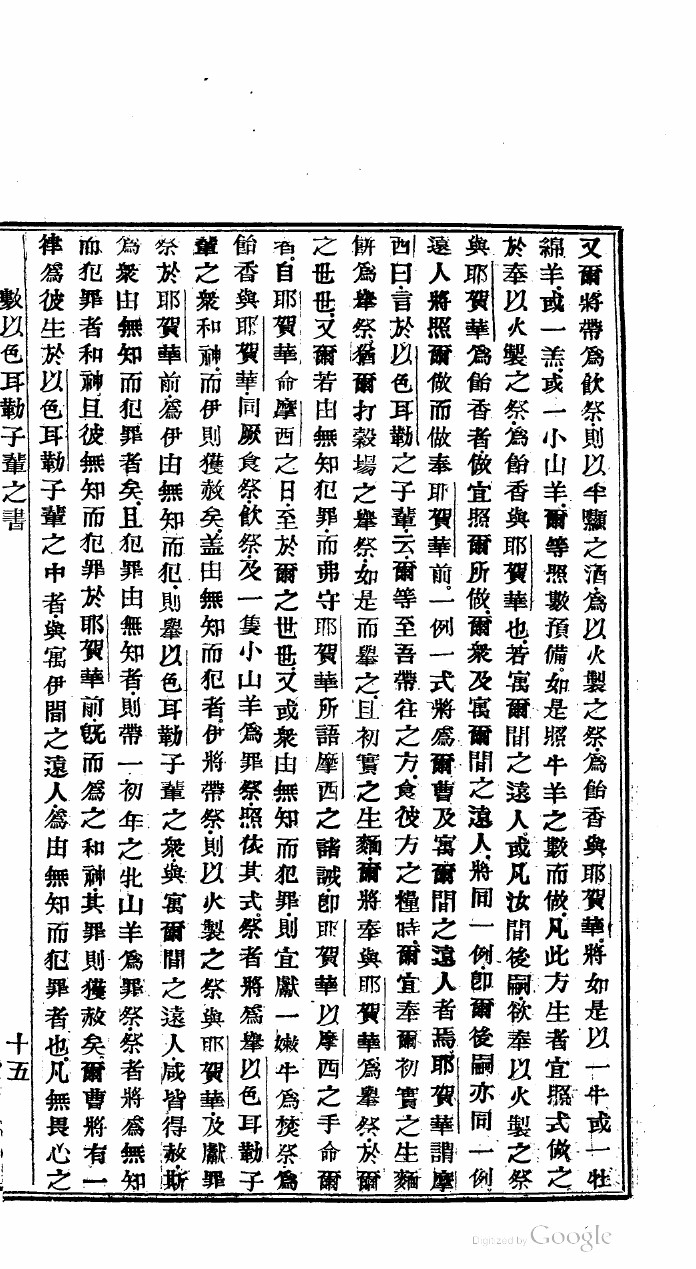 又爾將帶爲飲祭則以半顯之酒爲以火製之祭爲飴香與耶賀華將如是以一牛或一牡
綿羊或一羔或一小山羊爾等照數預備如是照牛羊之數而做凡此方生者宜照式做之
於奉以火製之祭爲飴香與耶賀華也若寓爾間之遠人或凡汝間後嗣欲奉以火製之祭
與耶賀華爲飴香者做宜照爾所做爾衆及寓爾間之遠人將同一例卽爾後嗣亦同一例
遠人將照爾做而做奉耶賀華前一例一式將爲爾曹及寓爾間之遠人者焉耶賀華謂摩
西曰言於以色耳勒之子輩云爾等至吾帶往之方食彼方之糧時爾宜奉爾初實之生麵
餅爲舉祭猶爾打穀場之舉祭如是而舉之且初實之生麵爾將奉與耶賀華爲舉祭於爾
之世世又爾若由無知犯罪而弗守耶賀華所語摩西之諸誡卽耶賀華以摩西之手命爾
者自耶賀華命摩西之日至於爾之世世又或衆由無知而犯罪則宜獻一嫩牛爲焚祭爲
飴香與耶賀華同厥食祭飲祭及一隻小山羊爲罪祭照依其式祭者將爲舉以色耳勒子
輩之衆和神而伊則獲赦矣盖由無知而犯者伊將帶祭則以火製之祭與耶賀華及獻罪
祭於耶賀華前爲伊由無知而犯則舉以色耳勒子輩之衆與寓爾間之遠人咸皆得赦斯
爲衆由無知而犯罪者矣且犯罪由無知者則帶一初年之牝山羊爲罪祭祭者將爲無知
而犯罪者和神且彼無知而犯罪於耶賀華前旣而爲之和神其罪則獲赦矣爾曹將有一
律爲彼生於以色耳勒子輩之中者與寓伊間之遠人爲由無知而犯罪者也凡無畏心之
數以色耳勒子輩之書
十五
Digitized by Google